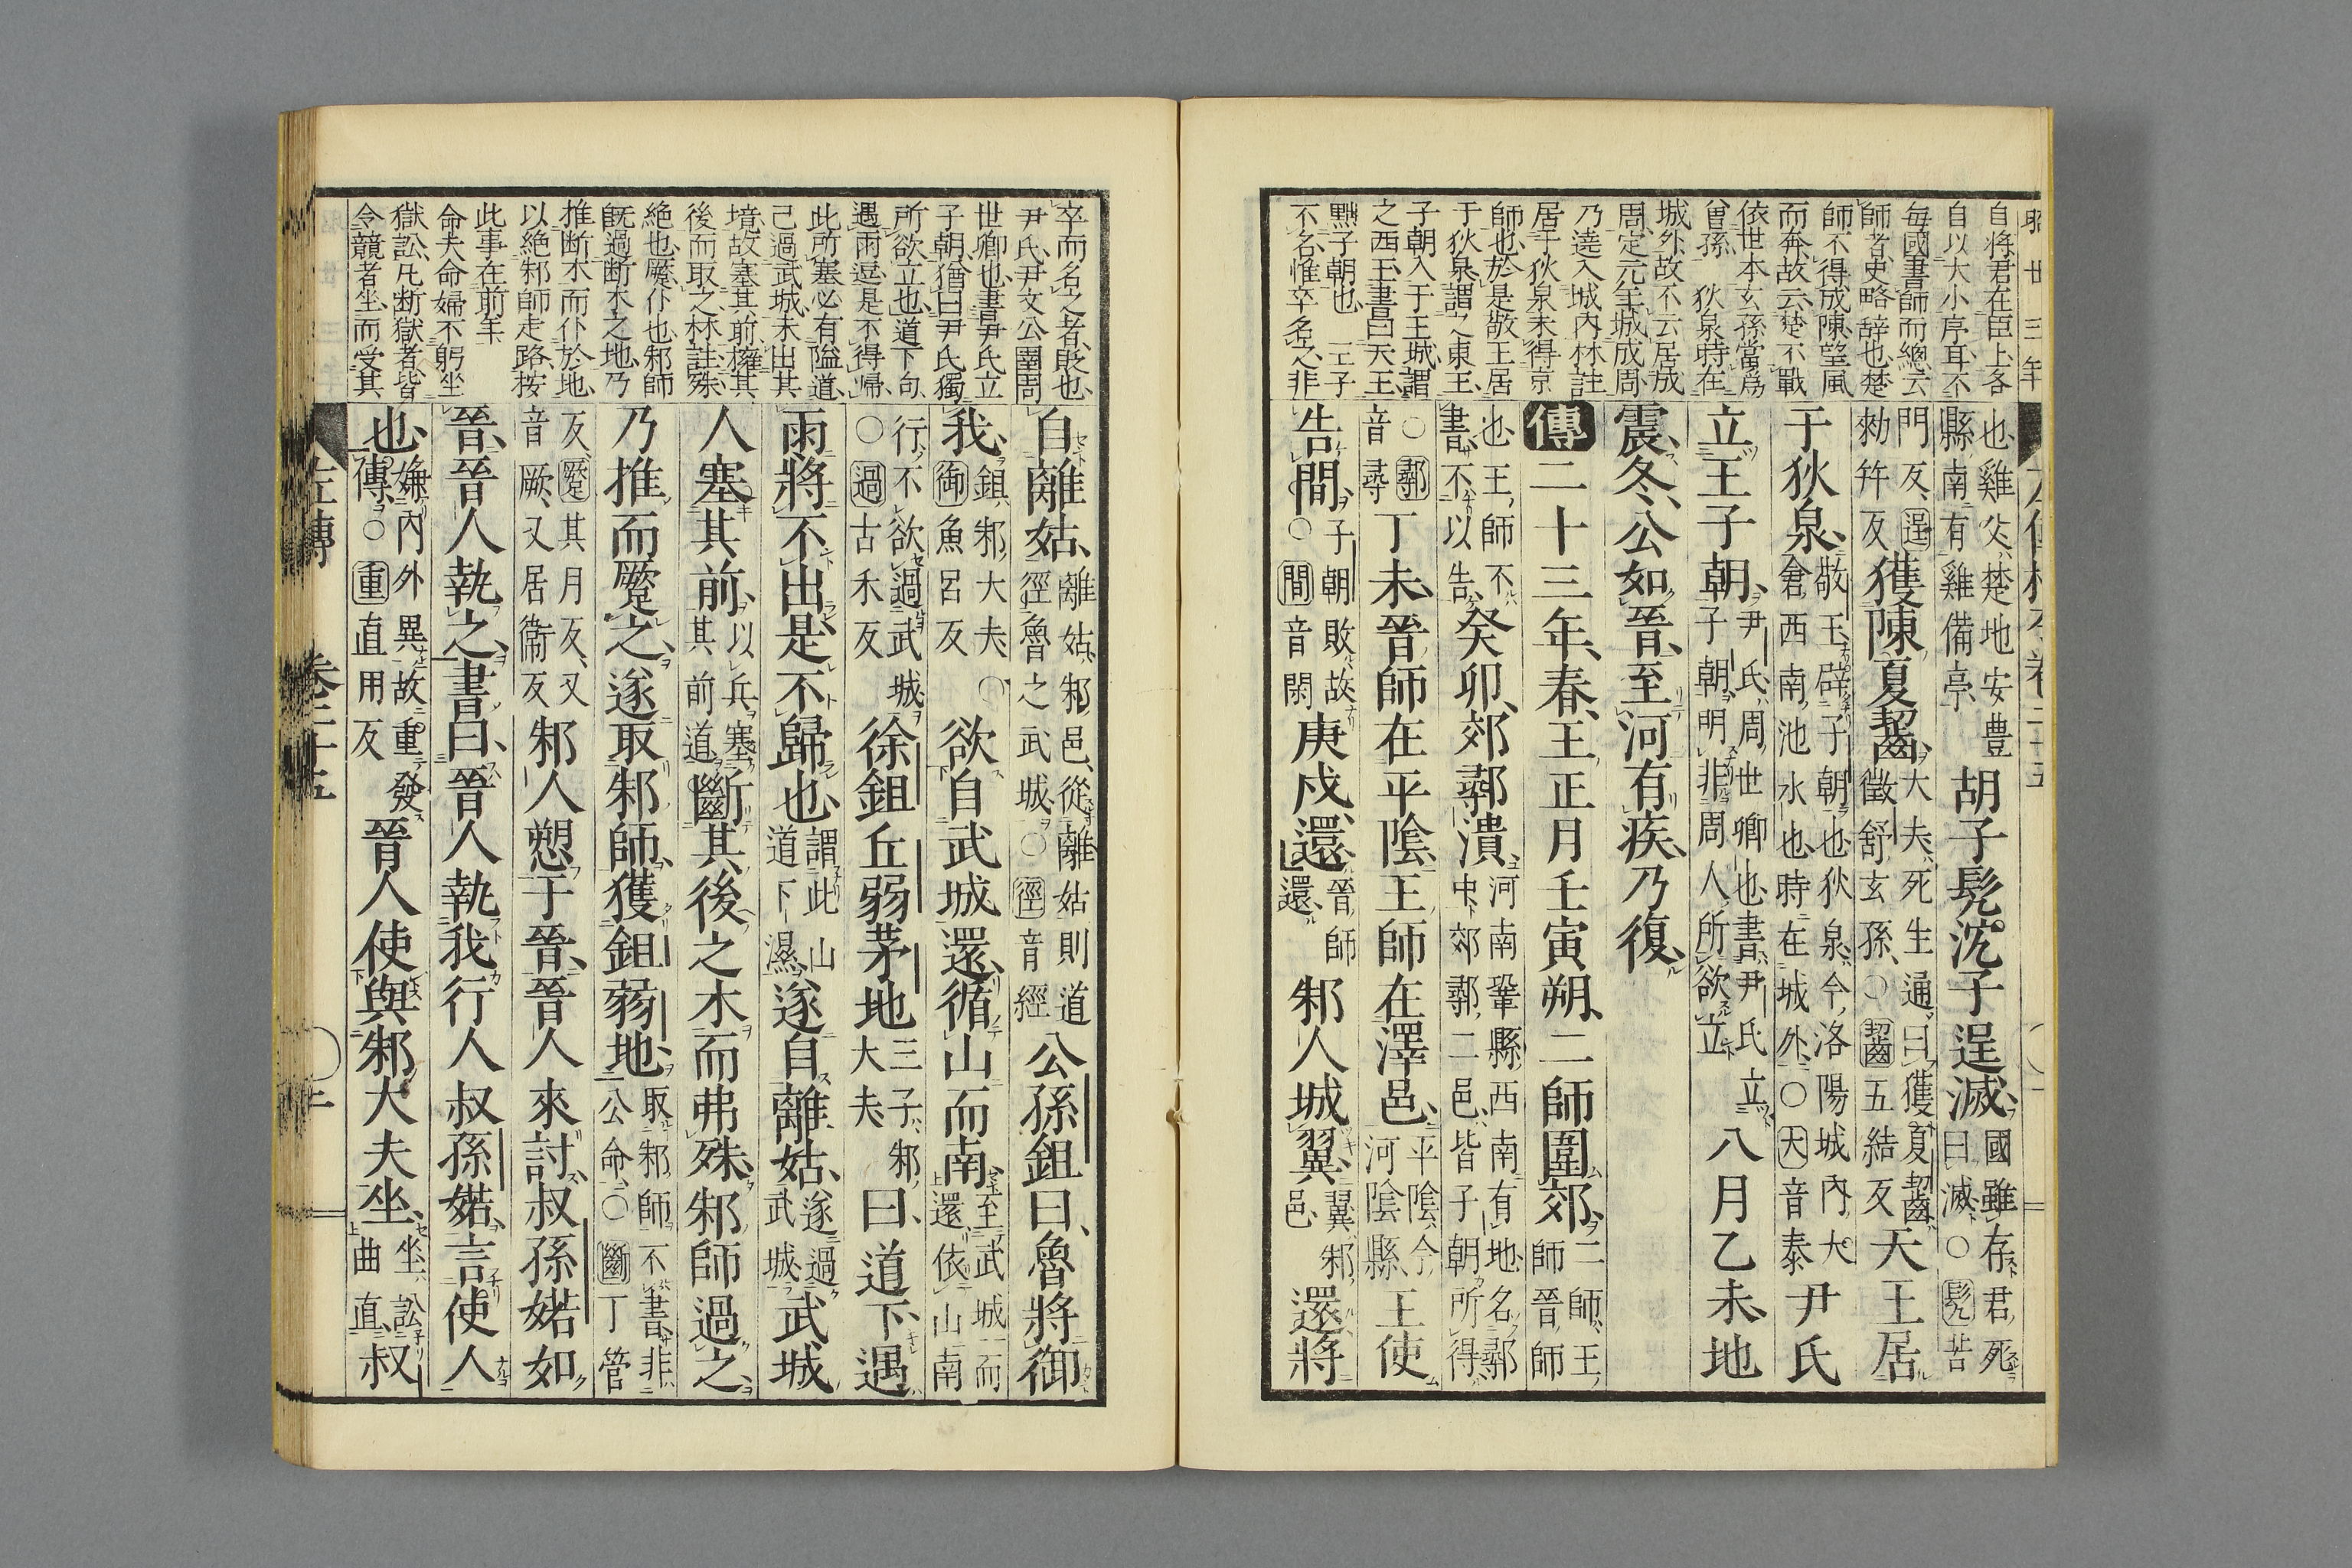 昭廿三年
自將君在臣上各
自以大小序耳不
每國書師而總云
師者史略辭也楚
師不得成陳望風
而奔故云楚不戰
依世本玄孫當爲
曾孫 狄泉時在
城外故不云居成
周定元年城成周
乃遶入城內林註
居于狄泉未得京
師也於是敬王居
于狄泉謂之東王
子朝入于王城謂
之西王書曰天王
黜子朝也 王子
不名惟卒名之非
也雞父楚地安豊縣南有雞備亭胡子髡沈子逞滅國雖存君死曰滅○髡苦
門反逞勑幷反獲陳夏齧大夫死生通曰獲夏齧徵舒玄孫○齧五結反天王居
于狄泉敬王辟子朝也狄泉今洛陽城內大倉西南池水也時在城外○大音泰尹氏
立王子朝尹氏周世卿也書尹氏立子朝明非周人所欲立八月乙未地
震冬公如晉至河有疾乃復
傳二十三年春王正月壬寅朔二師圍郊二師王師晉師
也王師不書不以告癸卯郊鄩潰河南鞏縣西南有地名鄩中郊鄩二邑皆子朝所得
○鄩音尋丁未晉師在平陰王師在澤邑平陰今河陰縣王使
告間子朝敗故○間音閑庚戍還晉師還邾人城翼翼邾邑還將
卒而名之者貶也
尹氏尹文公圉周
世卿也書尹氏立
子朝猶曰尹氏獨
所欲立也道下句
遇雨逗是不得歸
此所塞必有隘道
己過武城未出其
境故塞其前擁其
後而取之林註殊
絶也蹷仆也邾師
旣過断木之地乃
推断木而仆於地
以絶邾師走路按
此事在前年
命夫命婦不躬坐
獄訟凡断獄者皆
令競者坐而受其
自離姑離姑邾邑從離姑則道徑魯之武城○徑音經公孫鉏曰魯將御
我鉏邾大夫○御魚呂反欲自武城還循山而南至武城而還依山南
行不欲過武城○過古禾反徐鉏丘弱茅地三子邾大夫曰道下遇
雨將不出是不歸也謂此山道下濕遂自離姑遂過武城武城
人塞其前以兵塞其前道斷其後之木而弗殊邾師過之
乃推而蹷之遂取邾師獲鉏弱地取邾師不書非公命○斷丁管
反蹷其月反又音厥又居衞反邾人愬于晉晉人來討叔孫婼如
晉晉人執之書曰晉人執我行人叔孫婼言使人
也嫌內外異故重發傳○重直用反晉人使與邾大夫坐坐訟曲直叔
左傳 卷二十五